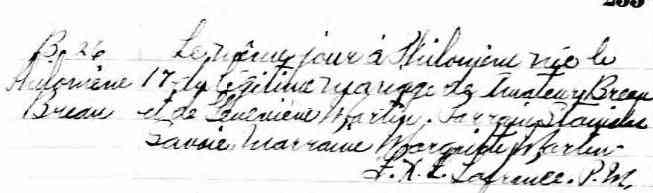 255
B. 26 Le même jour à Philomène née le
Philomène 17 du légitime mariage de Amateur Breau
Breau et de Geneviève Martin. Parrain Stanislas
Savoie Marraine Marguerite Martin
F. X. L. P. M